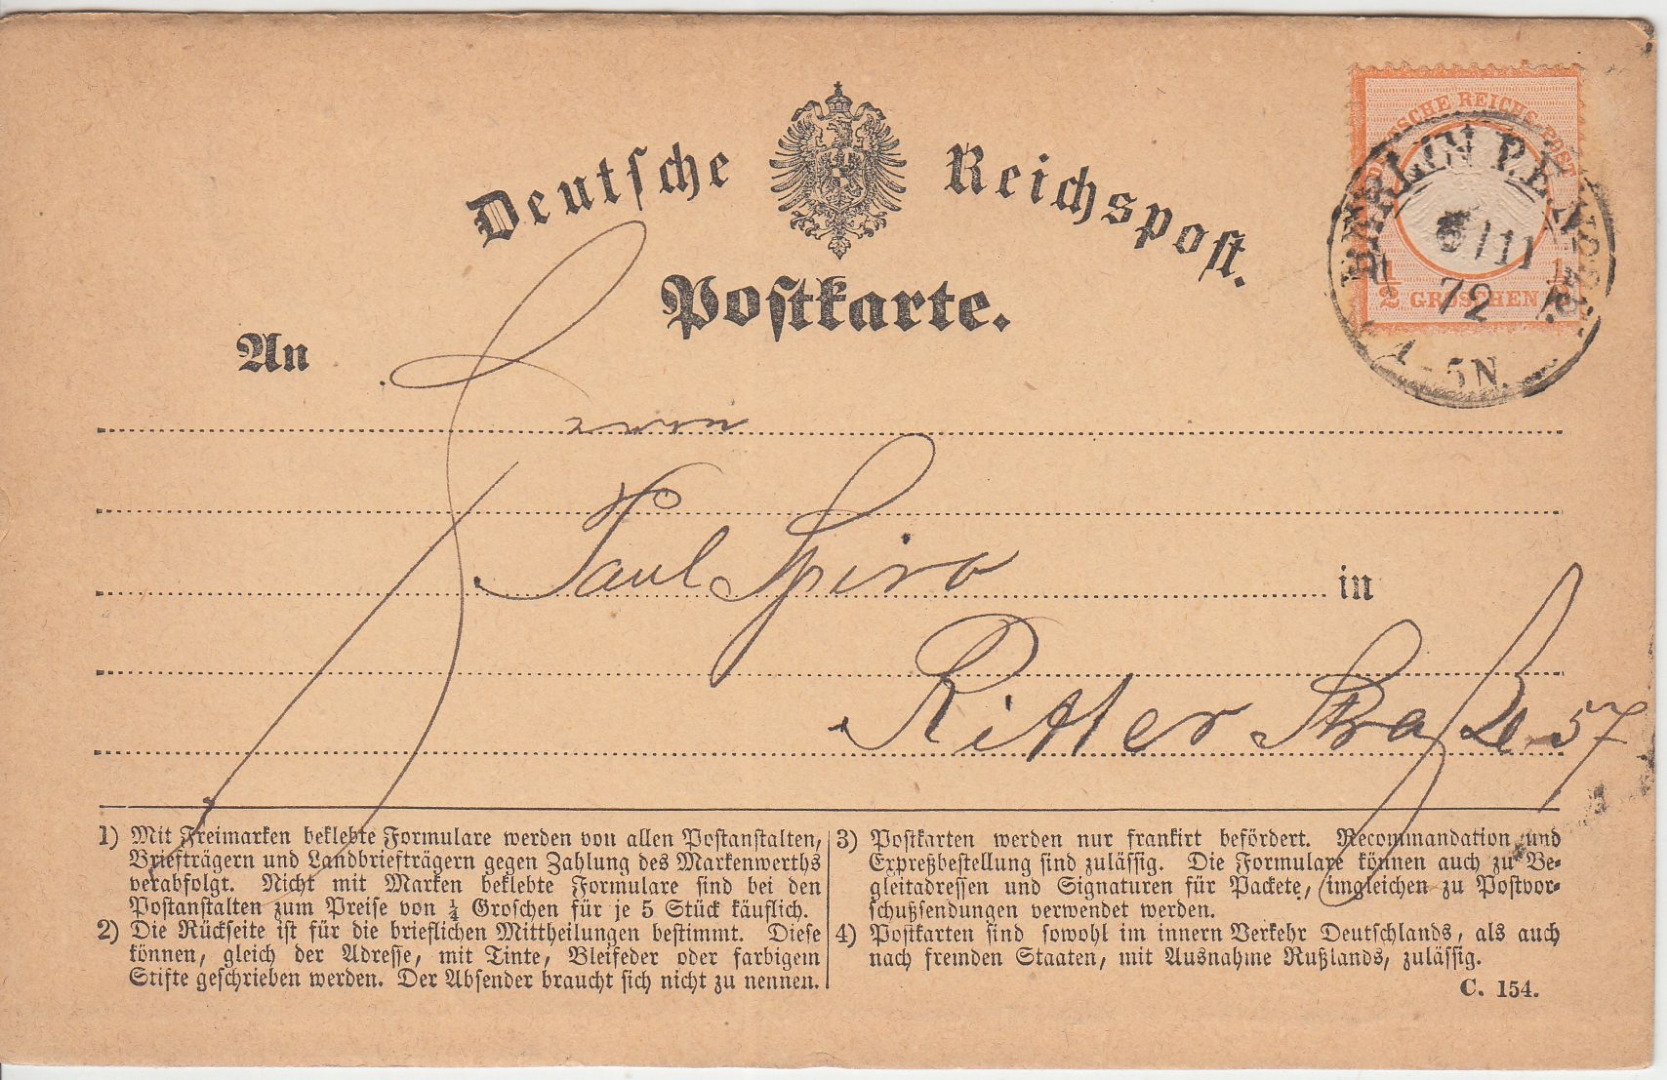 Deutsche Reichspost.
Postkarte.
DEUTSCHE REICHS-POST
½ GROSCHEN
BERLIN P.E.
11
72
5N.
An
Herrn
Paul Spiro
in
Ritter Straße 57
1) Mit Freimarken beklebte Formulare werden von allen Postanstalten,
Briefträgern und Landbriefträgern gegen Zahlung des Markenwerths
verabfolgt. Nicht mit Marken beklebte Formulare sind bei den
Postanstalten zum Preise von ¼ Groschen für je 5 Stück käuflich.
2) Die Rückseite ist für die brieflichen Mittheilungen bestimmt. Diese
können, gleich der Adresse, mit Tinte, Bleifeder oder farbigem
Stifte geschrieben werden. Der Absender braucht sich nicht zu nennen.
3) Postkarten werden nur frankirt befördert. Recommandation und
Expreßbestellung sind zulässig. Die Formulare können auch zu Be-
gleitadressen und Signaturen für Packete, imgleichen zu Postvor-
schußsendungen verwendet werden.
4) Postkarten sind sowohl im innern Verkehr Deutschlands, als auch
nach fremden Staaten, mit Ausnahme Rußlands, zulässig.
C. 154.